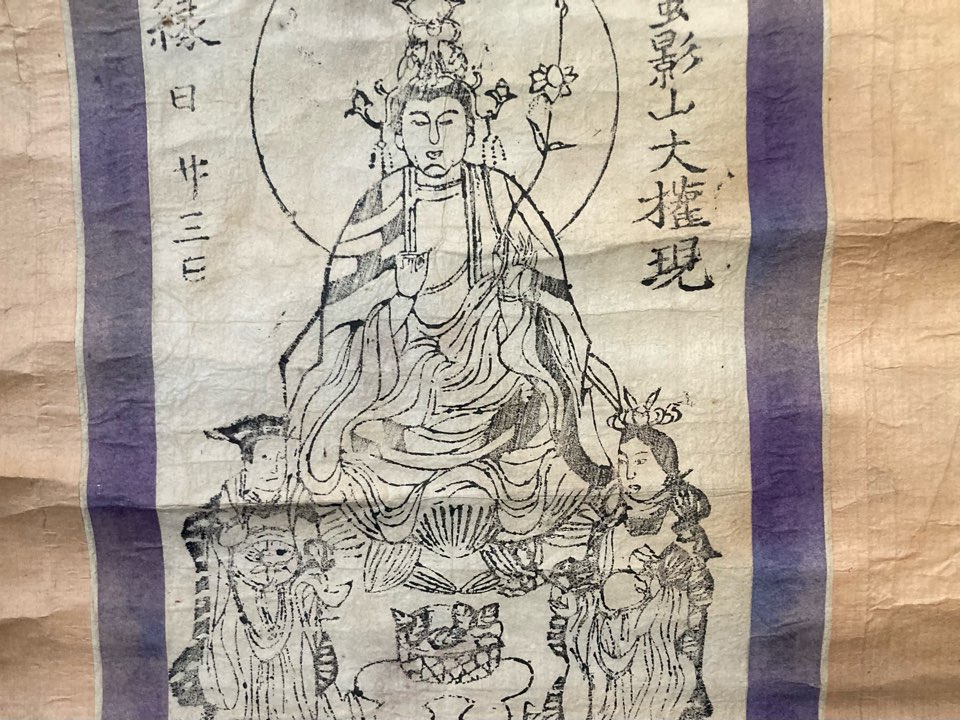 影山大權現
縁日廿三日